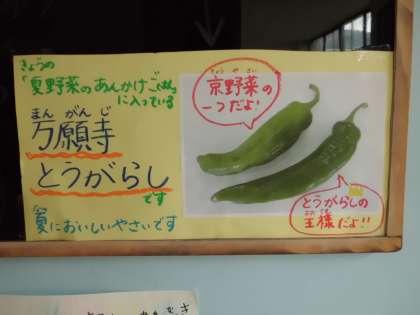 きょうの
「夏野菜のあんかけごはん」
に入っている
まんがんじ
万願寺
とうがらし
です
なつ
夏においしいやさいです
きょうやさい
京野菜の
一つだよ!
とうがらしの
おうさま
王様だよ!!